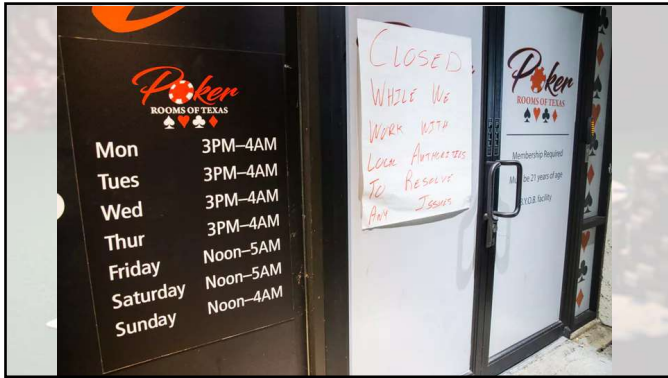 Poker
ROOMS OF TEXAS
Mon 3PM–4AM
Tues 3PM–4AM
Wed 3PM–4AM
Thur 3PM–4AM
Friday Noon–5AM
Saturday Noon–5AM
Sunday Noon–4AM
CLOSED
WHILE WE
WORK WITH
LOCAL AUTHORITIES
TO RESOLVE
ANY ISSUES
Poker
ROOMS OF TEXAS
Membership Required
be 21 years of age
facility